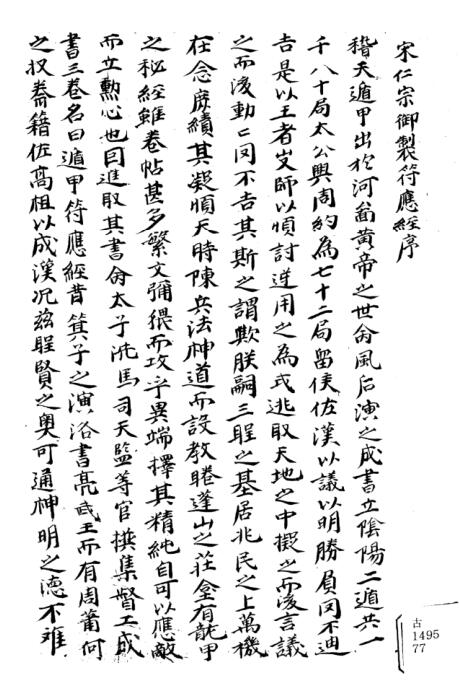 宋仁宗御製符應經序
稽夫遁甲出於河啚黄帝之世命風后演之成書立陰陽二遁共一
千八十局太公興周約為七十二局留侯佐漢以議以明勝負罔不迪
吉是以王者出師以順討逆用之為式逃取天地之中擬之而後言議
之而後動亡罔不吉其斯之謂歟朕嗣三聖之基居兆民之上萬機
在念庶績其凝順天時陳兵法神道而設教睠蓬山之莊金有龍甲
之秘經雖卷帖甚多繁文彌猥而攻乎異端擇其精純自可以應敵
而立勲心也因進取其書命太子洗馬司天監等官撰集督工成
書三卷名曰遁甲符應經昔箕子之演洛書亮武王而有周蕭何
之収秦籍佐高祖以成漢况兹聖賢之奥可通神明之德不难
古
1495
77